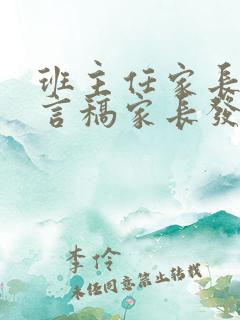 班主任家長
言稿家長發
李伶
未经同意禁止转载